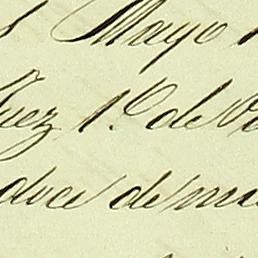 Mayo
Juez 1º de
doce de